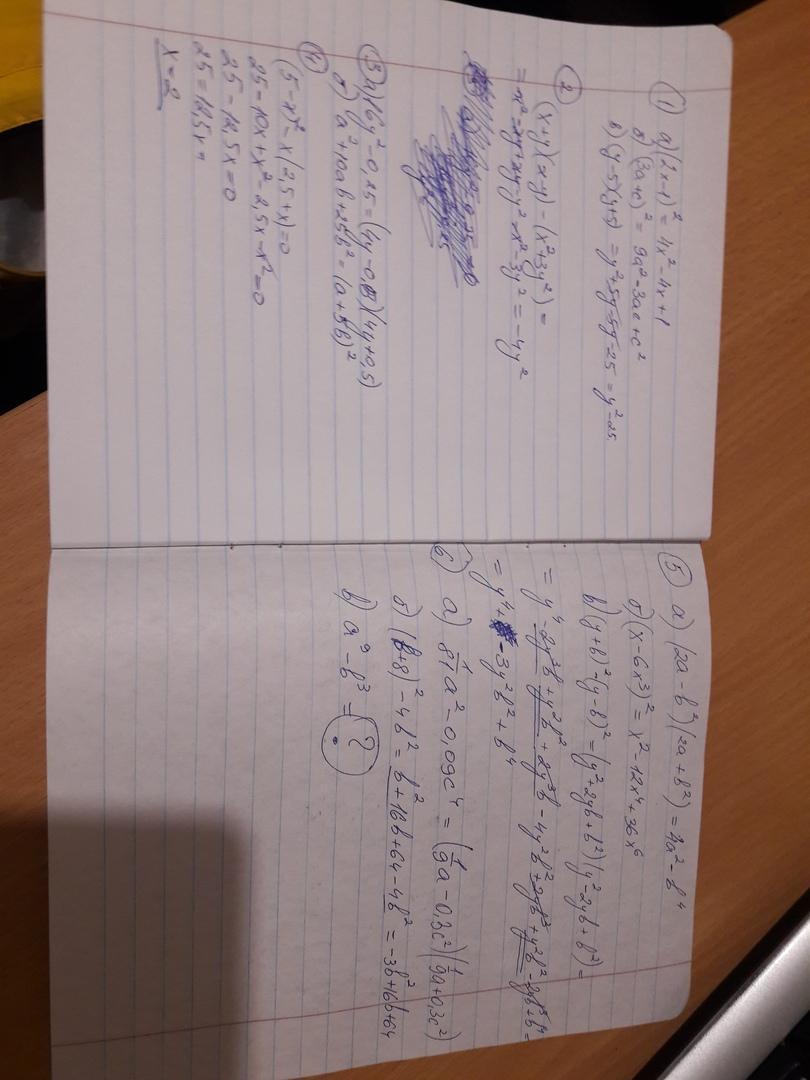 ① а) (2x-1)² = 4x² - 4x + 1
б) (3a+c)² = 9a² - 3ac + c²
в) (y-5)(y+5) = y² + 5y - 5y - 25 = y² - 25
②
(x+y)(x-y) - (x² + 3y²) =
= x² - xy + xy - y² - x² - 3y² = -4y²
③ а) 16y² - 0,25 = (4y - 0,5)(4y + 0,5)
б) a² + 10ab + 25b² = (a + 5b)²
④
(5-x)² - x(2,5+x) = 0
25 - 10x + x² - 2,5x - x² = 0
25 - 12,5x = 0
25 = 12,5x =
x = 2
⑤ а) (2a - b²)(2a + b²) = 4a² - b⁴
б) (x - 6x³)² = x² - 12x⁴ + 36x⁶
в) (y+b)² · (y-b)² = (y² + 2yb + b²)(y² - 2yb + b²) =
= y⁴ - 2y³b + y²b² + 2y³b - 4y²b² + 2yb³ + y²b² - 2yb³ + b⁴ =
= y⁴ + - 3y²b² + b⁴
⑥ а) 1/81 a² - 0,09c⁴ = (1/9 a - 0,3c²)(1/9 a + 0,3c²)
б) (b+8)² - 4b² = b² + 16b + 64 - 4b² = -3b² + 16b + 64
в) a⁹ - b³ = ?